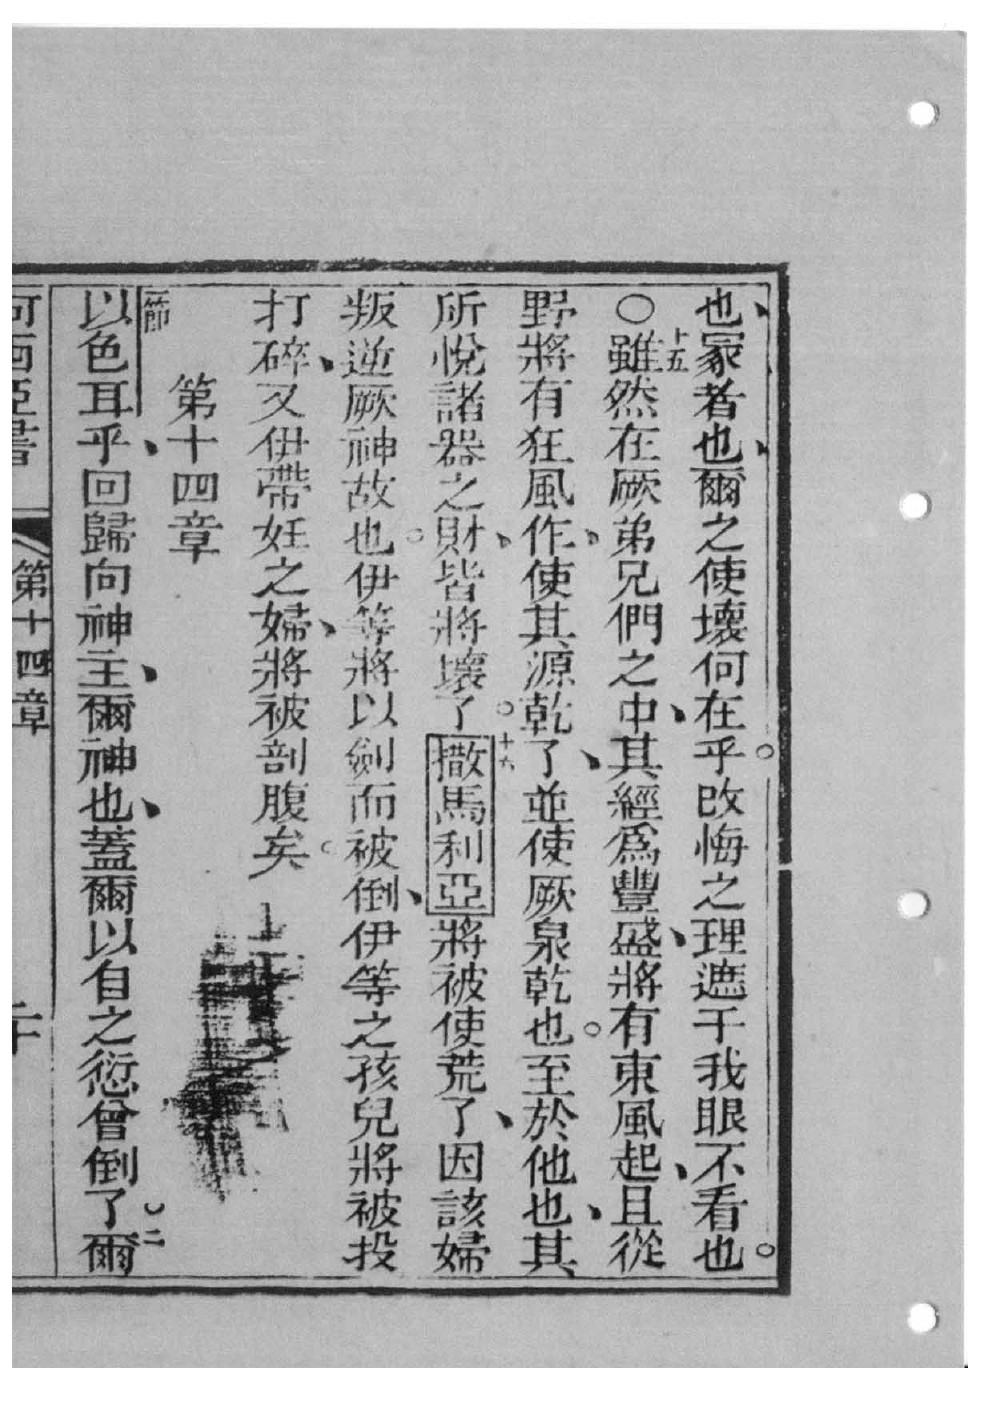 也、冡者也、爾之使壞何在乎。改悔之理遮于我眼不看也。
○十五雖然在厥弟兄們之中、其經爲豐盛、將有東風起、且從
野將有狂風作、使其源乾了、並使厥泉乾也。至於他也、其
所悅諸器之財、皆將壞了。十六撒馬利亞將被使荒了、因該婦
叛逆厥神故也。伊等將以劍而被倒、伊等之孩兒將被投
打碎、又伊帶妊之婦、將被剖腹矣。
第十四章
一節以色耳乎、回歸向神主、爾神也、蓋爾以自之愆曾倒了。二爾
何西亞書
第十四章
二十